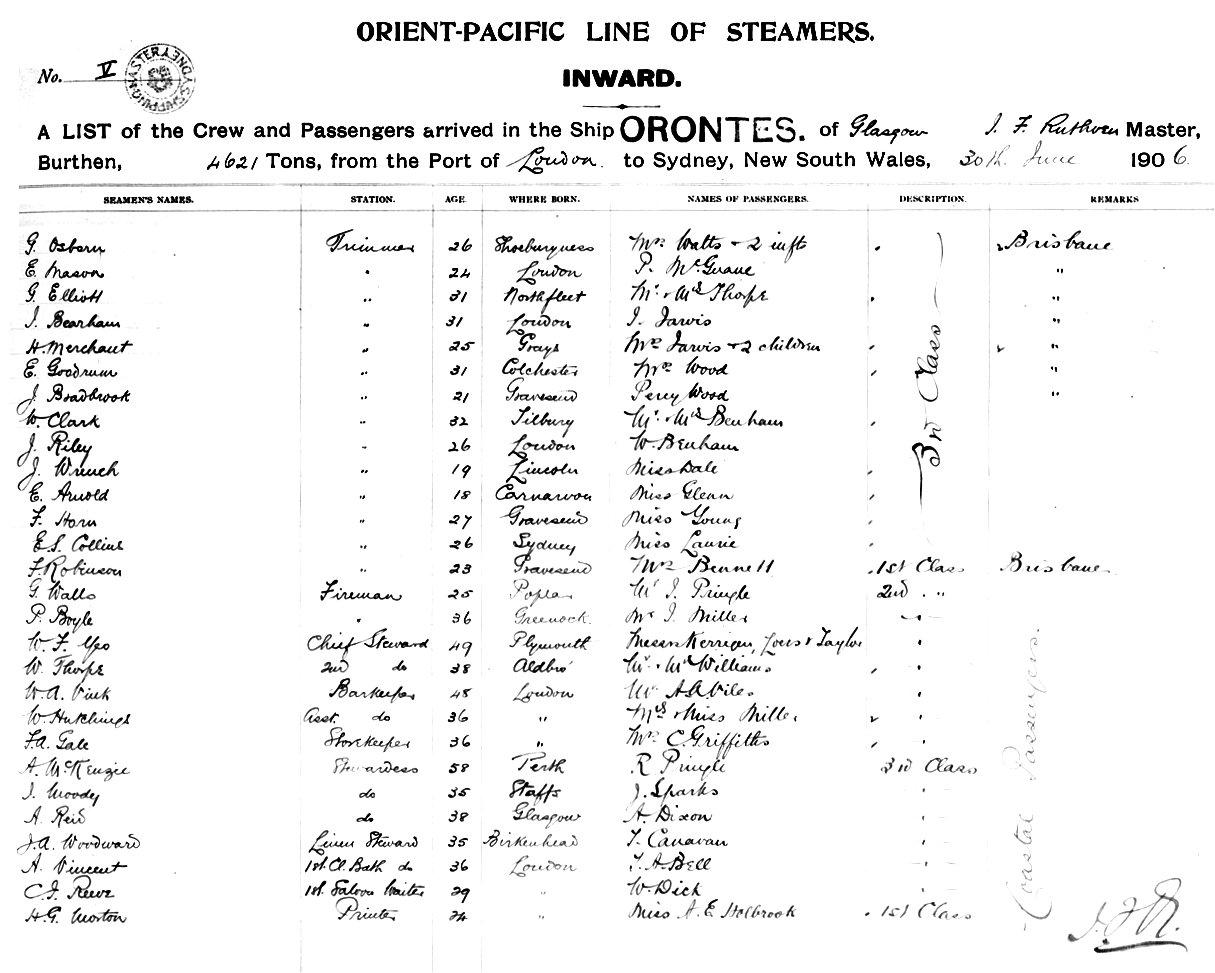 ORIENT-PACIFIC LINE OF STEAMERS.
No. V
INWARD.
A LIST of the Crew and Passengers arrived in the Ship ORONTES. of Glasgow J. F. Ruthven Master,
Burthen, 4621 Tons, from the Port of London. to Sydney, New South Wales, 30th. June 1906.
SEAMEN'S NAMES. STATION. AGE. WHERE BORN. NAMES OF PASSENGERS. DESCRIPTION. REMARKS
G. Osborn Trimmer 26 Shoeburyness Mrs Watts + 2 infts Brisbane
E. Mason " 24 London P. McGuane "
G. Elliott " 31 Northfleet Mr. & Mrs Thorpe "
J. Bearham " 31 London J. Jarvis "
H. Merchant " 25 Grays Mrs Jarvis + 2 children "
E. Goodrum " 31 Colchester Mrs Wood "
J. Bradbrook " 21 Gravesend Percy Wood "
W. Clark " 32 Tilbury Mr. & Mrs Benham
J. Riley " 26 London W. Benham
3rd Class
J. Wrench " 19 Lincoln Miss Dale
E. Arnold " 18 Carnarvon Miss Glenn
F. Horn " 27 Gravesend Miss Young
E.S. Collins " 26 Sydney Miss Laurie
F. Robinson " 23 Gravesend Mrs Bennett 1st Class Brisbane
G. Walls Fireman 25 Poplar Mr J. Pringle 2nd "
P. Boyle " 36 Greenock Mr J. Miller "
W. F. Yeo Chief Steward 49 Plymouth Messrs Kerrigan, & Taylor "
W. Thorpe 2nd do 38 Aldbro' Mr. & Mrs Williams "
W. A. Vink Barkeeper 48 London Mr A A Viles "
W. Hutchings Asst. do 36 " Mrs & Miss Miller "
F.A. Gale Storekeeper 36 " Mrs C. Griffiths "
A. McKenzie Stewardess 58 Perth R Pringle 3rd Class
J. Moody do 35 Staffs J. Sparks "
A. Reid do 38 Glasgow A. Dixon "
J.A. Woodward Linen Steward 35 Birkenhead T. Canavan "
A. Vincent 1st. Cl. Bath do 36 London T. A. Bell "
C.J. Reeve 1st. Saloon Waiter 29 " W. Dick "
H.G. Morton Printer 24 " Miss A. E. Holbrook 1st Class
Coastal Passengers.
J.F.R.